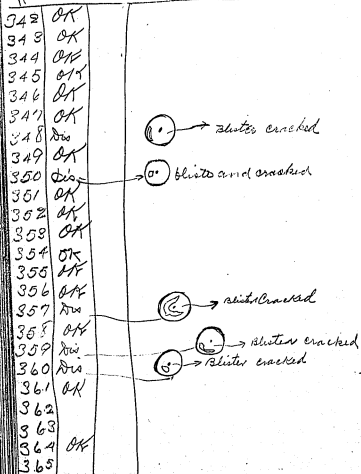 342 OK
343 OK
344 OK
345 OK
346 OK
347 OK
348 Dis Blister cracked
349 OK
350 Dis blister and cracked
351 OK
352 OK
353 OK
354 OK
355 OK
356 OK
357 Dis Blister Cracked
358 OK
359 Dis Blister cracked
360 Dis Blister cracked
361 OK
362
363
364 OK
365